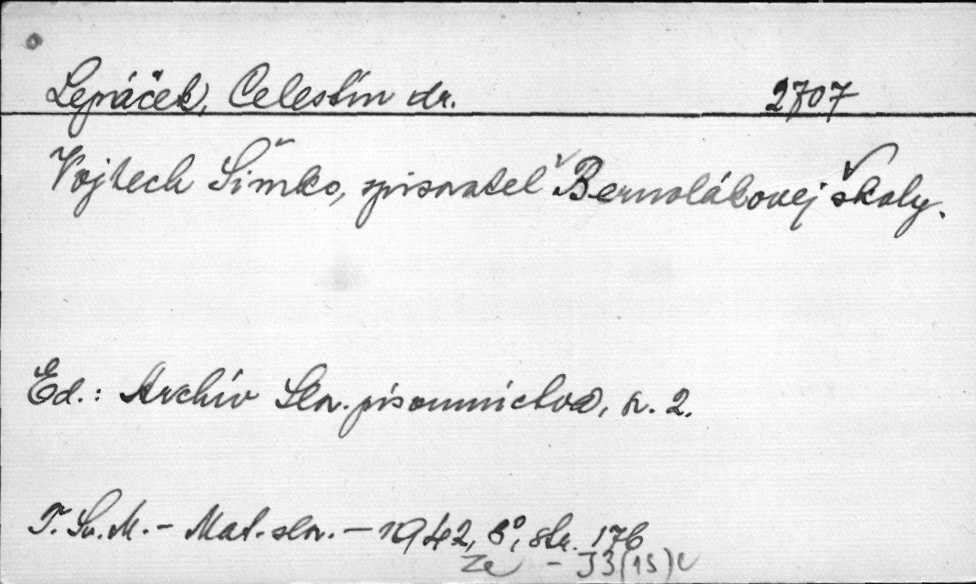 Lepáček, Celestín dr. 2707
Vojtech Šimko, spisovateľ Bernolákovej školy.
Ed.: Archív Slov. písomníctva, sv. 2.
T. Sv. M. – Mat. slov. – 1942, 8°, str. 176
– J3(15)c